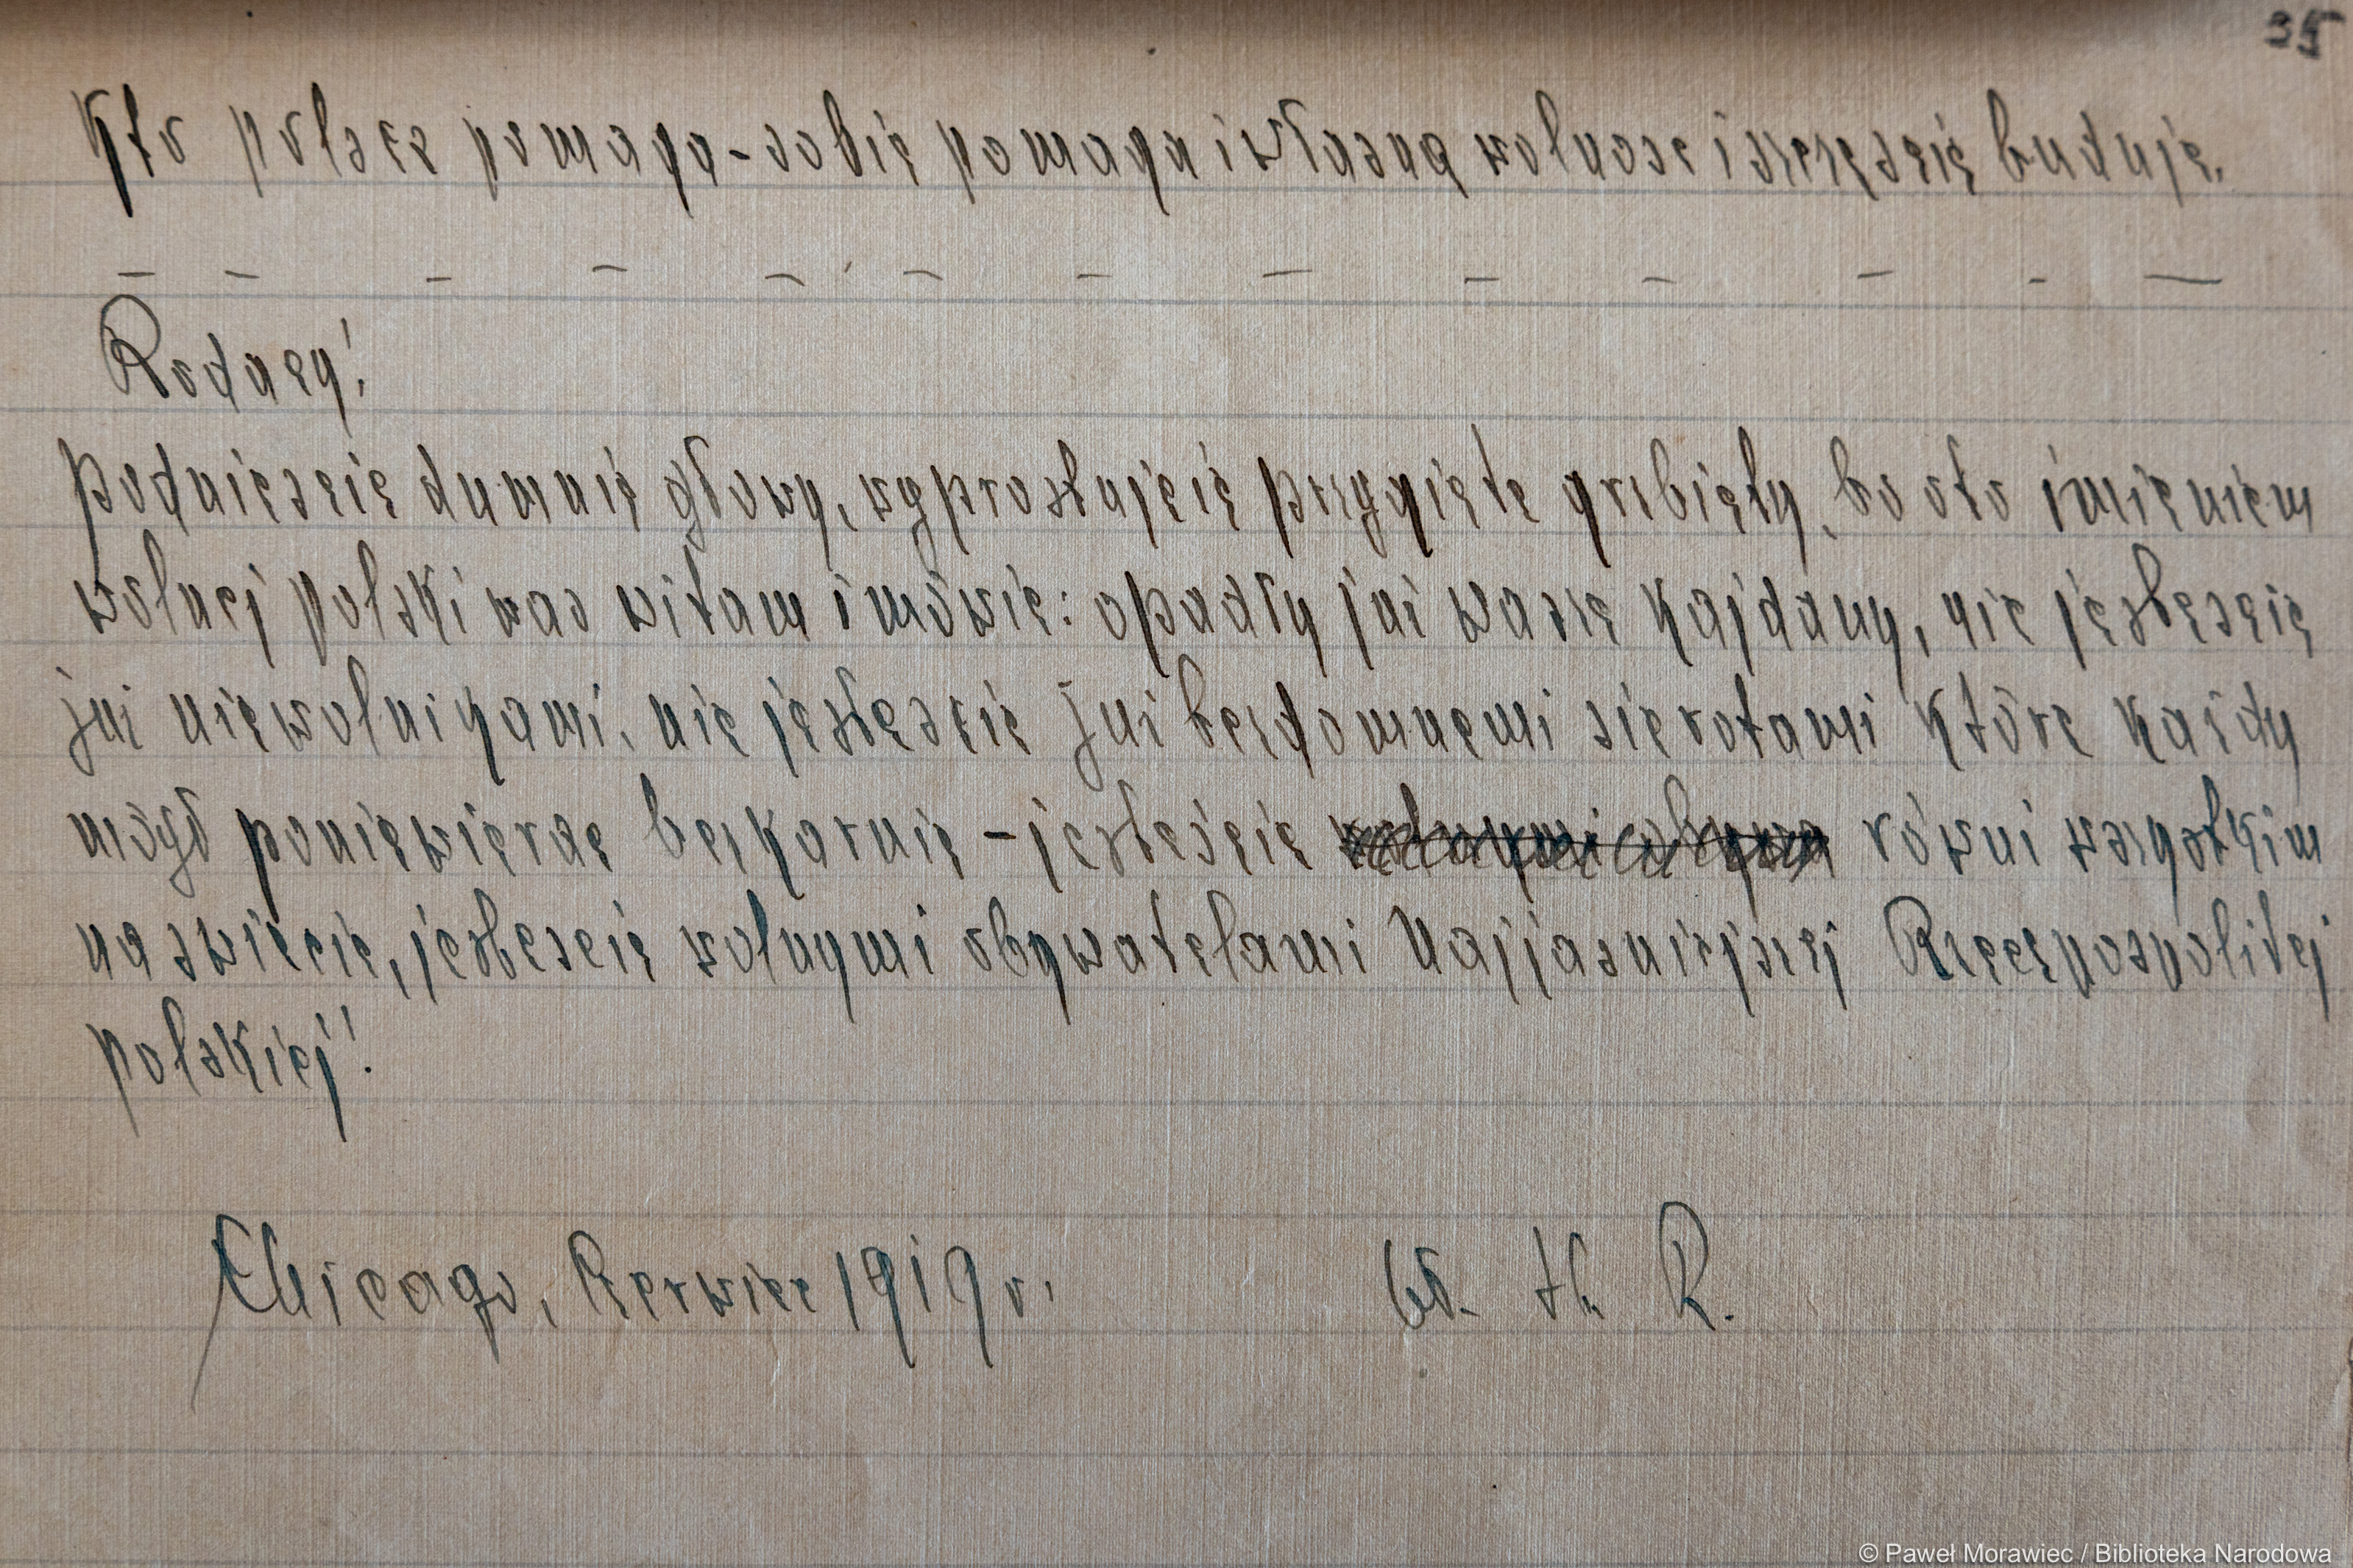 35
Kto polsce pomaga - sobie pomaga i własną wolnosc i szczęscie buduje.
Rodacy!
podniescie dumnie głowy, wyprostujcie przygięte grzbiety, bo oto imieniem
wolnej polski was witam i mówie: opadły jui wasze kajdany, nie jestescie
jui niewolnikami, nie jestescie jui bezdomnemi sierotami które kaidy
mógł poniewierac bezkarnie - jesteście równi wszystkim
na swiecie, jestescie wolnymi obywatelami Najjasniejszej Rzeczpospolitej
polskiej!
Chicago, Czerwiec 1919 r. Wł. th R.
© Paweł Morawiec / Biblioteka Narodowa